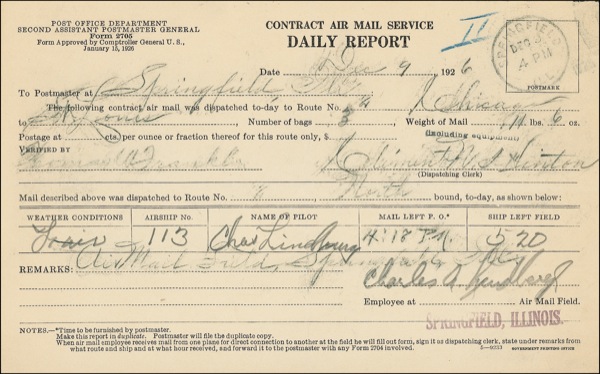 POST OFFICE DEPARTMENT
SECOND ASSISTANT POSTMASTER GENERAL
Form 2705
Form Approved by Comptroller General U. S.,
January 15, 1926
CONTRACT AIR MAIL SERVICE
DAILY REPORT
II
SPRINGFIELD
DEC 9
4 PM
ILL.
POSTMARK
Date Dec 9, 1926
To Postmaster at Springfield Ill.
The following contract air mail was dispatched to-day to Route No. 2 Chicago
to St Louis Number of bags, 3 Weight of Mail, 11 lbs. 6 oz.
Postage at cts. per ounce or fraction thereof for this route only, $ (including equipment)
VERIFIED BY
Thomas
(Dispatching Clerk)
Mail described above was dispatched to Route No. North bound, to-day, as shown below:
WEATHER CONDITIONS AIRSHIP NO. NAME OF PILOT MAIL LEFT P. O.* SHIP LEFT FIELD
Fair 113 Chas Lindbergh 4:15 P.M. 5 20
REMARKS: Air Mail Field, Springfield, Ills
Charles A Lindbergh
Employee at Air Mail Field.
SPRINGFIELD, ILLINOIS.
NOTES.—*Time to be furnished by postmaster.
Make this report in duplicate. Postmaster will file the duplicate copy.
When air mail employee receives mail from one plane for direct connection to another at the field he will fill out form, sign it as dispatching clerk, state under remarks from
what route and ship and at what hour received, and forward it to the postmaster with any Form 2704 involved.
5—9233 GOVERNMENT PRINTING OFFICE